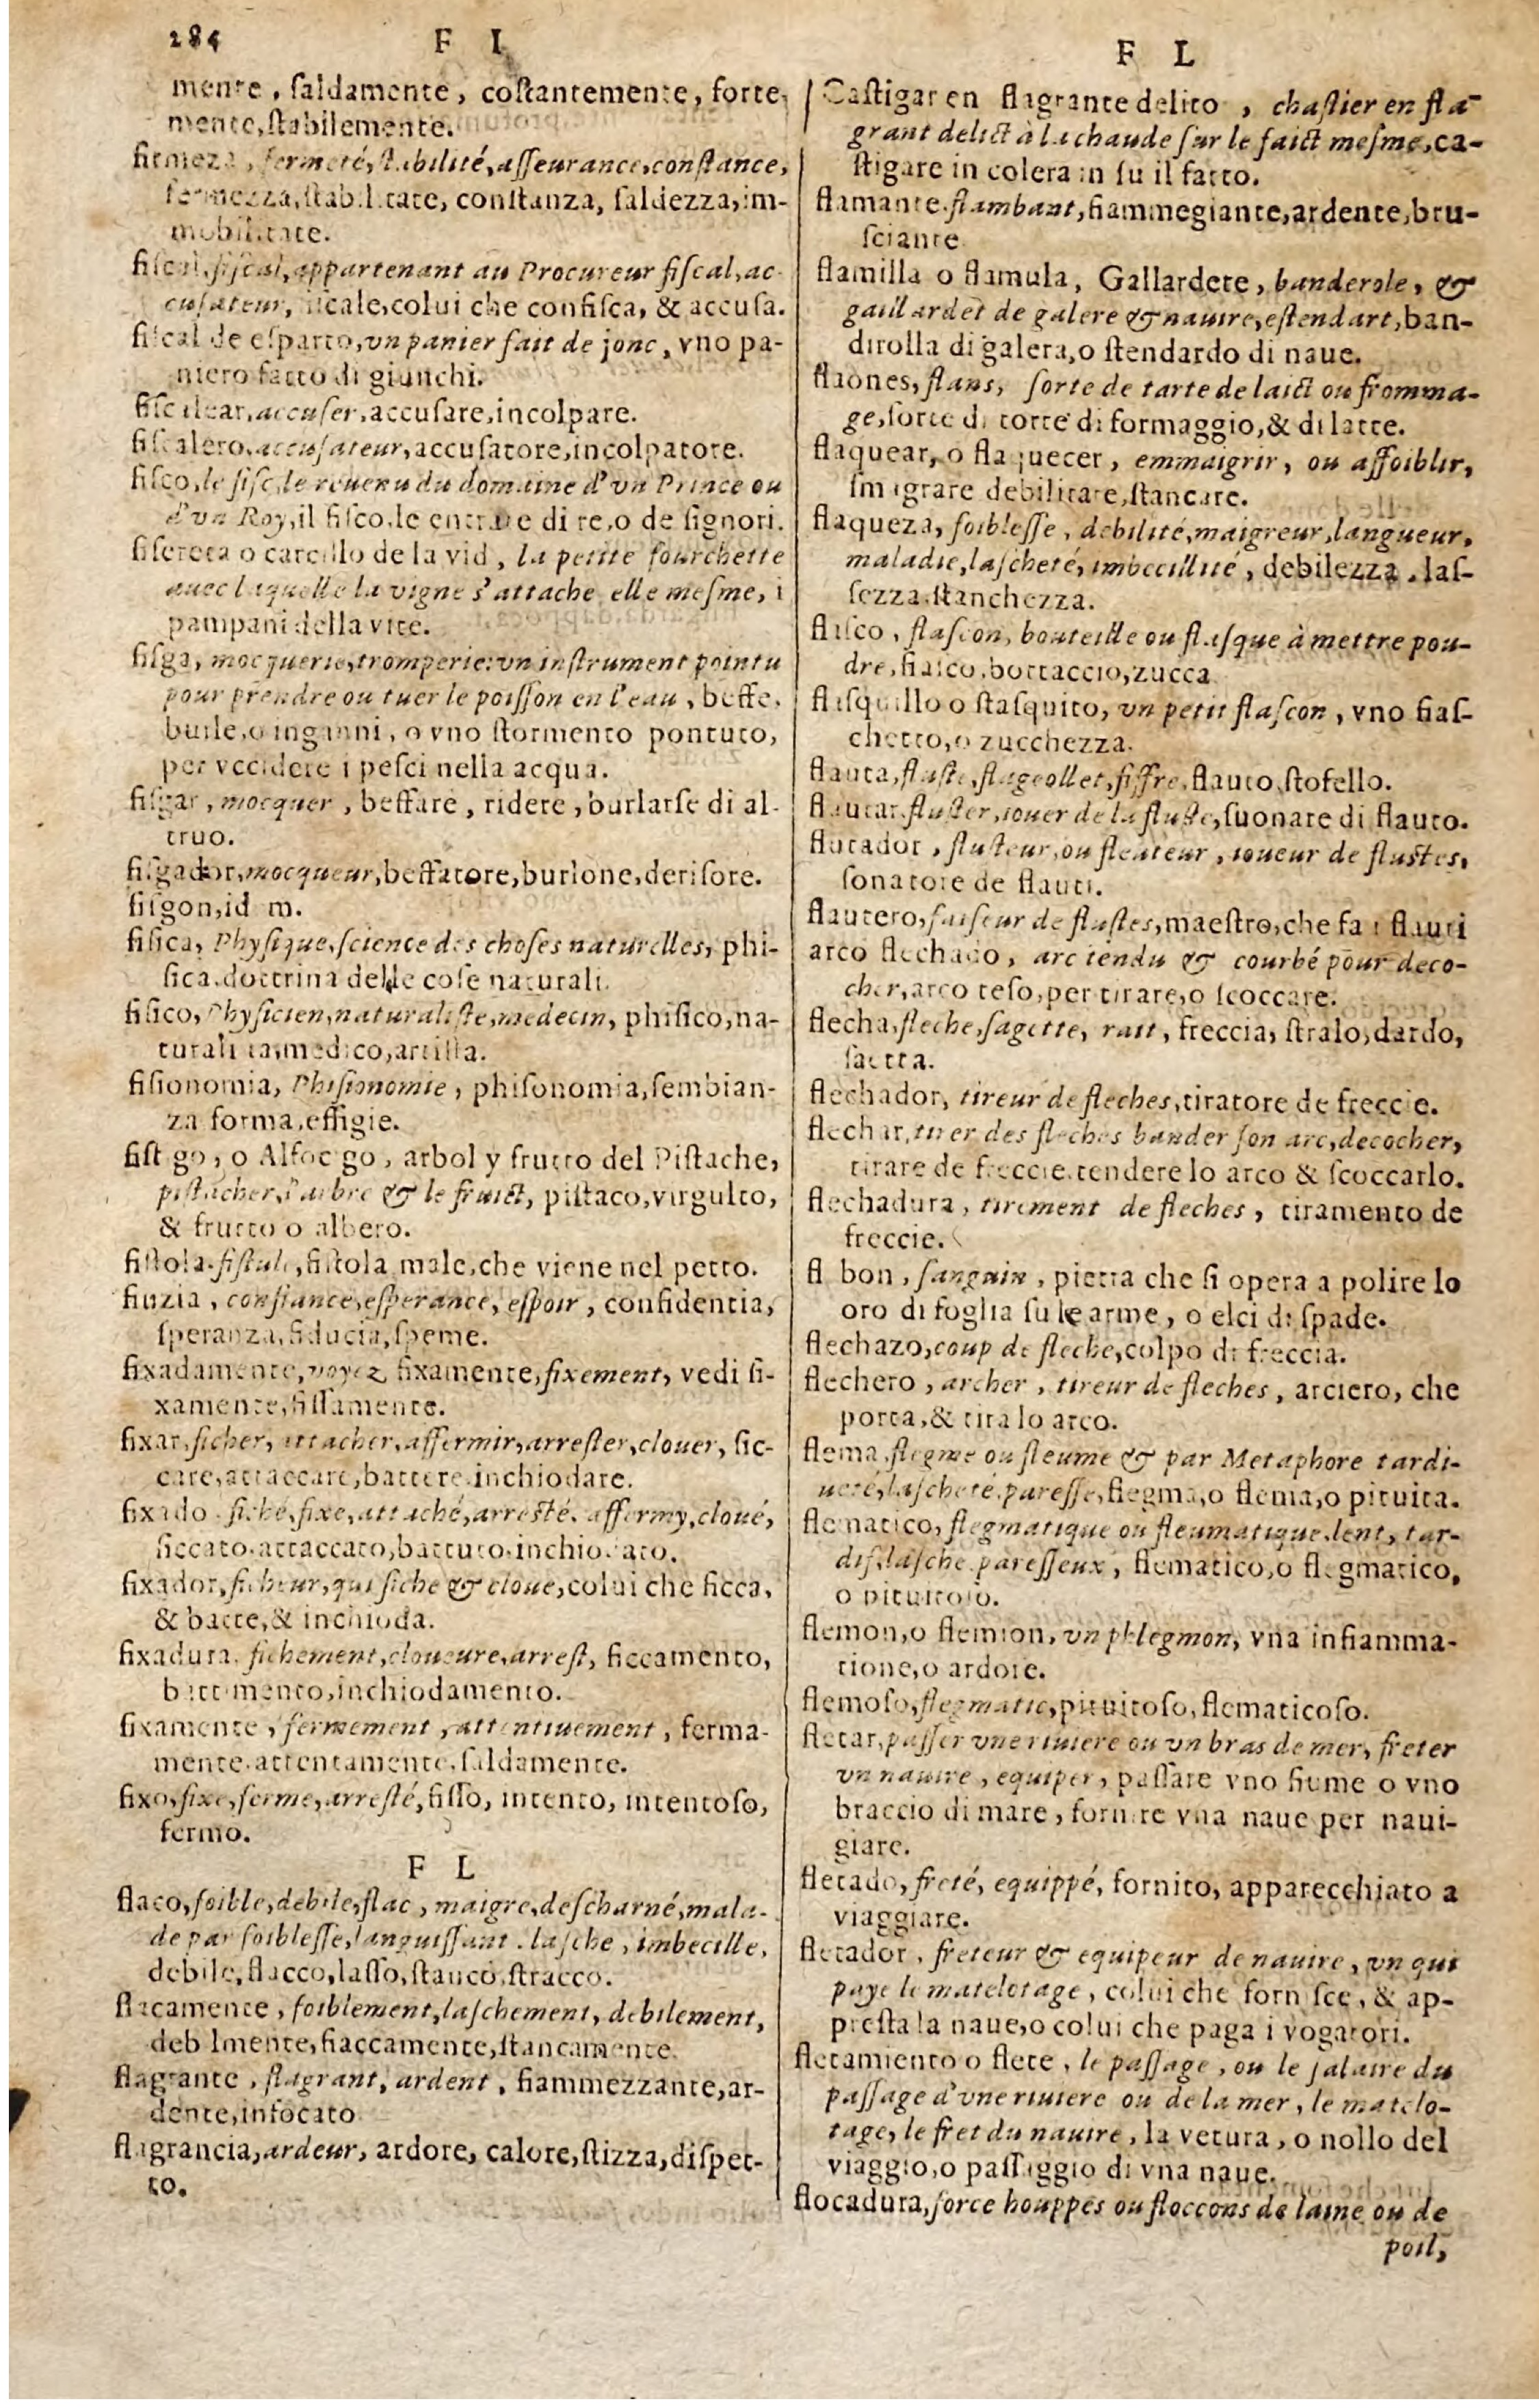 284 F I
mente, ſaldamente, coſtantemente, forte-
mente, ſtabilemente.
firmeza, fermeté, ſtabilité, aſſeurance, conſtance,
fermezza, ſtabilitate, conſtanza, ſaldezza, im-
mobilitate.
fiſcal, fiſcal, appartenant au Procureur fiſcal, ac-
cuſateur, fiſcale, colui che confiſca, & accuſa.
fiſcal de eſparto, vn panier fait de jonc, vno pa-
niero fatto di giunchi.
fiſcalear, accuſer, accuſare, incolpare.
fiſcalero, accuſateur, accuſatore, incolpatore.
fiſco, le fiſc, le reuenu du domaine d'vn Prince ou
d'vn Roy, il fiſco, le entrate di re, o de ſignori.
fiſcreta o carcillo de la vid, la petite fourchette
auec laquelle la vigne s'attache elle meſme, i
pampani della vite.
fiſga, mocquerie, tromperie: vn inſtrument pointu
pour prendre ou tuer le poiſſon en l'eau, beffe,
burle, o inganni, o vno ſtormento pontuto,
per vccidere i peſci nella acqua.
fiſgar, mocquer, beffare, ridere, burlarſe di al-
truo.
fiſgador, mocqueur, beffatore, burlone, deriſore.
fiſgon, id m.
fiſica, Phyſique, ſcience des choſes naturelles, phi-
ſica, dottrina delle coſe naturali.
fiſico, Phyſicien, naturaliſte, medecin, phiſico, na-
turaliſta, medico, artiſta.
fiſionomia, Phiſionomie, phiſonomia, ſembian-
za forma, effigie.
fiſtigo, o Alfocigo, arbol y frutto del Piſtache,
piſtacher, l'arbre & le fruict, piſtaco, virgulto,
& frutto o albero.
fiſtola, fiſtule, fiſtola male, che viene nel petto.
fiuzia, confiance, eſperance, eſpoir, confidentia,
ſperanza, fiducia, ſpeme.
fixadamente, voyez fixamente, fixement, vedi fi-
xamente, fiſſamente.
fixar, ficher, attacher, affermir, arreſter, clouer, fic-
care, attaccare, battere, inchiodare.
fixado, fiché, fixe, attaché, arreſté, affermy, cloué,
ficcato, attaccato, battuto, inchiodato.
fixador, ficheur, qui fiche & cloue, colui che ficca,
& batte, & inchioda.
fixadura, fichement, cloueure, arreſt, ficcamento,
battimento, inchiodamento.
fixamente, fermement, attentiuement, ferma-
mente, attentamente, ſaldamente.
fixo, fixe, ferme, arreſté, fiſſo, intento, intentoſo,
fermo.
F L
flaco, foible, debile, flac, maigre, deſcharné, mala-
de par foibleſſe, languiſſant, laſche, imbecille,
debile, flacco, laſſo, ſtanco, ſtracco.
flacamente, foiblement, laſchement, debilement,
debilmente, fiaccamente, ſtancamente.
flagrante, flagrant, ardent, fiammezzante, ar-
dente, infocato
flagrancia, ardeur, ardore, calore, ſtizza, diſpet-
to.
F L
Caſtigar en flagrante delito, chaſtier en fla-
grant delict à la chaude ſur le faict meſme, ca-
ſtigare in colera in ſu il fatto.
flamante, flambant, fiammegiante, ardente, bru-
ſciante
flamilla o flamula, Gallardete, banderole, &
gaillardet de galere & nauire, eſtendart, ban-
dirolla di galera, o ſtendardo di naue.
flaones, flans, ſorte de tarte de laict ou fromma-
ge, ſorte di torte di formaggio, & di latte.
flaquear, o flaquecer, emmaigrir, ou affoiblir,
ſmagrare debilitare, ſtancare.
flaqueza, foibleſſe, debilité, maigreur, langueur,
maladie, laſcheté, imbecillité, debilezza, laſ-
ſezza, ſtanchezza.
flaſco, flaſcon, bouteille ou flaſque à mettre pou-
dre, fiaſco, bottaccio, zucca
flaſquillo o flaſquito, vn petit flaſcon, vno fiaſ-
chetto, o zucchezza.
flauta, fluſte, flageollet, fiffre, flauto, ſtofello.
flautar, fluſter, iouer de la fluſte, ſuonare di flauto.
flutador, fluſteur, ou fleuteur, ioueur de fluſtes,
ſonatore de flauti.
flautero, faiſeur de fluſtes, maeſtro, che fa i flauti
arco flechado, arc tendu & courbé pour deco-
cher, arco teſo, per tirare, o ſcoccare.
flecha, fleche, ſagette, rait, freccia, ſtralo, dardo,
ſaetta.
flechador, tireur de fleches, tiratore de freccie.
flechar, tirer des fleches bander ſon arc, decocher,
tirare de freccie, tendere lo arco & ſcoccarlo.
flechadura, tirement de fleches, tiramento de
freccie.
fl bon, ſanguin, pietra che ſi opera a polire lo
oro di foglia ſu le arme, o elci di ſpade.
flechazo, coup de fleche, colpo di freccia.
flechero, archer, tireur de fleches, arciero, che
porta, & tira lo arco.
flema, flegme ou fleume & par Metaphore tardi-
ueté, laſcheté, pareſſe, flegma, o flema, o pituita.
flematico, flegmatique ou fleumatique, lent, tar-
dif, laſche, pareſſeux, flematico, o flegmatico,
o pituitoſo.
flemon, o flemion, vn phlegmon, vna infiamma-
tione, o ardore.
flemoſo, flegmatic, pituitoſo, flematicoſo.
fletar, paſſer vne riuiere ou vn bras de mer, freter
vn nauire, equiper, paſſare vno fiume o vno
braccio di mare, fornire vna naue per naui-
giare.
fletado, freté, equippé, fornito, apparecchiato a
viaggiare.
fletador, freteur & equipeur de nauire, vn qui
paye le matelotage, colui che forniſce, & ap-
preſta la naue, o colui che paga i vogatori.
fletamiento o flete, le paſſage, ou le ſalaire du
paſſage d'vne riuiere ou de la mer, le matelo-
tage, le fret du nauire, la vetura, o nollo del
viaggio, o paſſaggio di vna naue.
flocadura, force houppes ou floccons de laine ou de
poil,